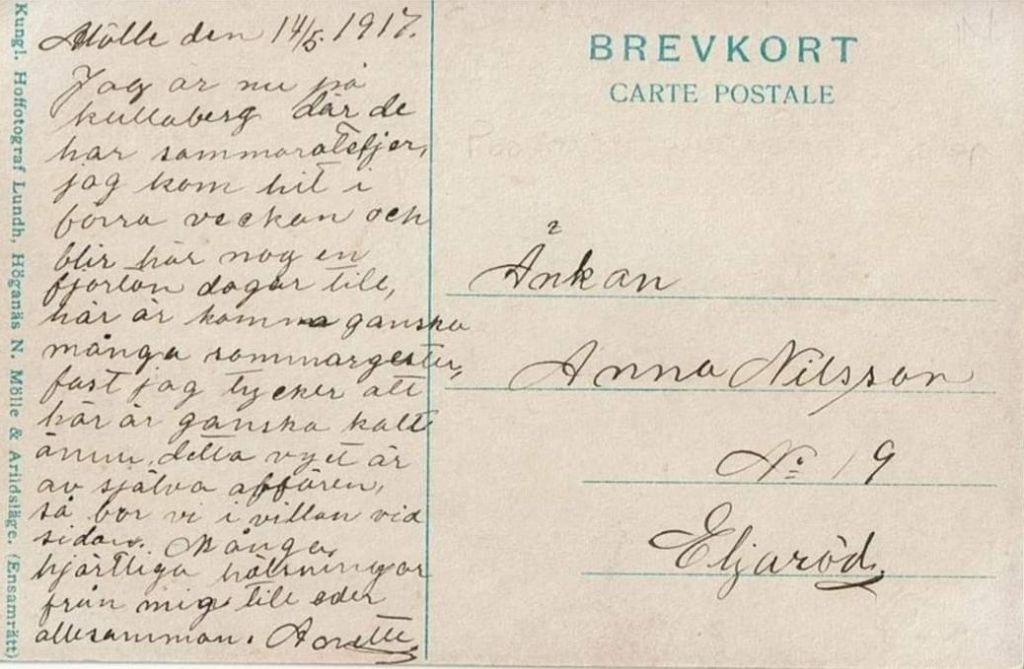 Kungl. Hoffotograf Lundh, Höganäs N. Mölle & Arildsläge. (Ensamrätt)
Mölle den 14/5. 1917.
Jag är nu på
kullaberg där de
har sommaratefjer,
jag kom hit i
förra veckan och
blir här nog en
fjorton dagar till,
här är komna ganska
många sommargester,
fast jag tycker att
här är ganska kalt
ännu, detta vyet är
av själva affären,
så bor vi i villan vid
sidan. Många
hjärtliga hälsningar
från mig till eder
allesamman.
BREVKORT
CARTE POSTALE
Änkan
Anna Nilsson
No 19
Eljaröd.